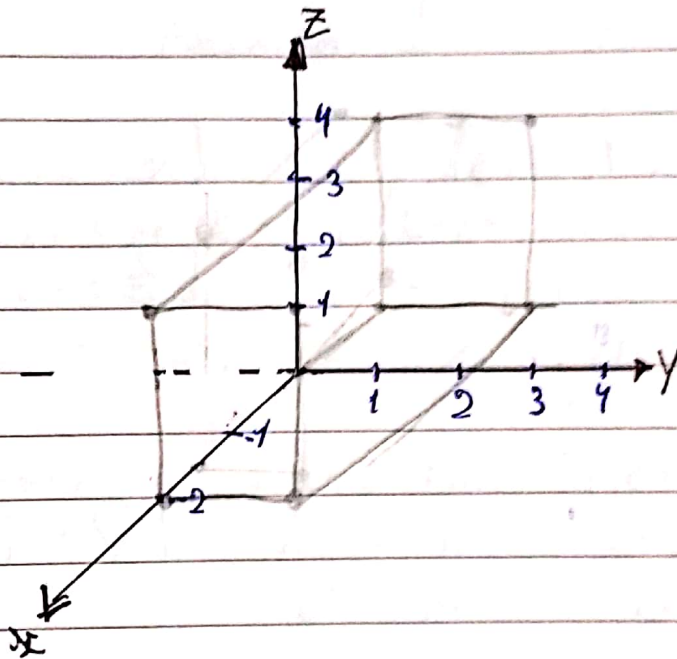 Z
4
3
2
1
Y
1 2 3 4
1
2
x